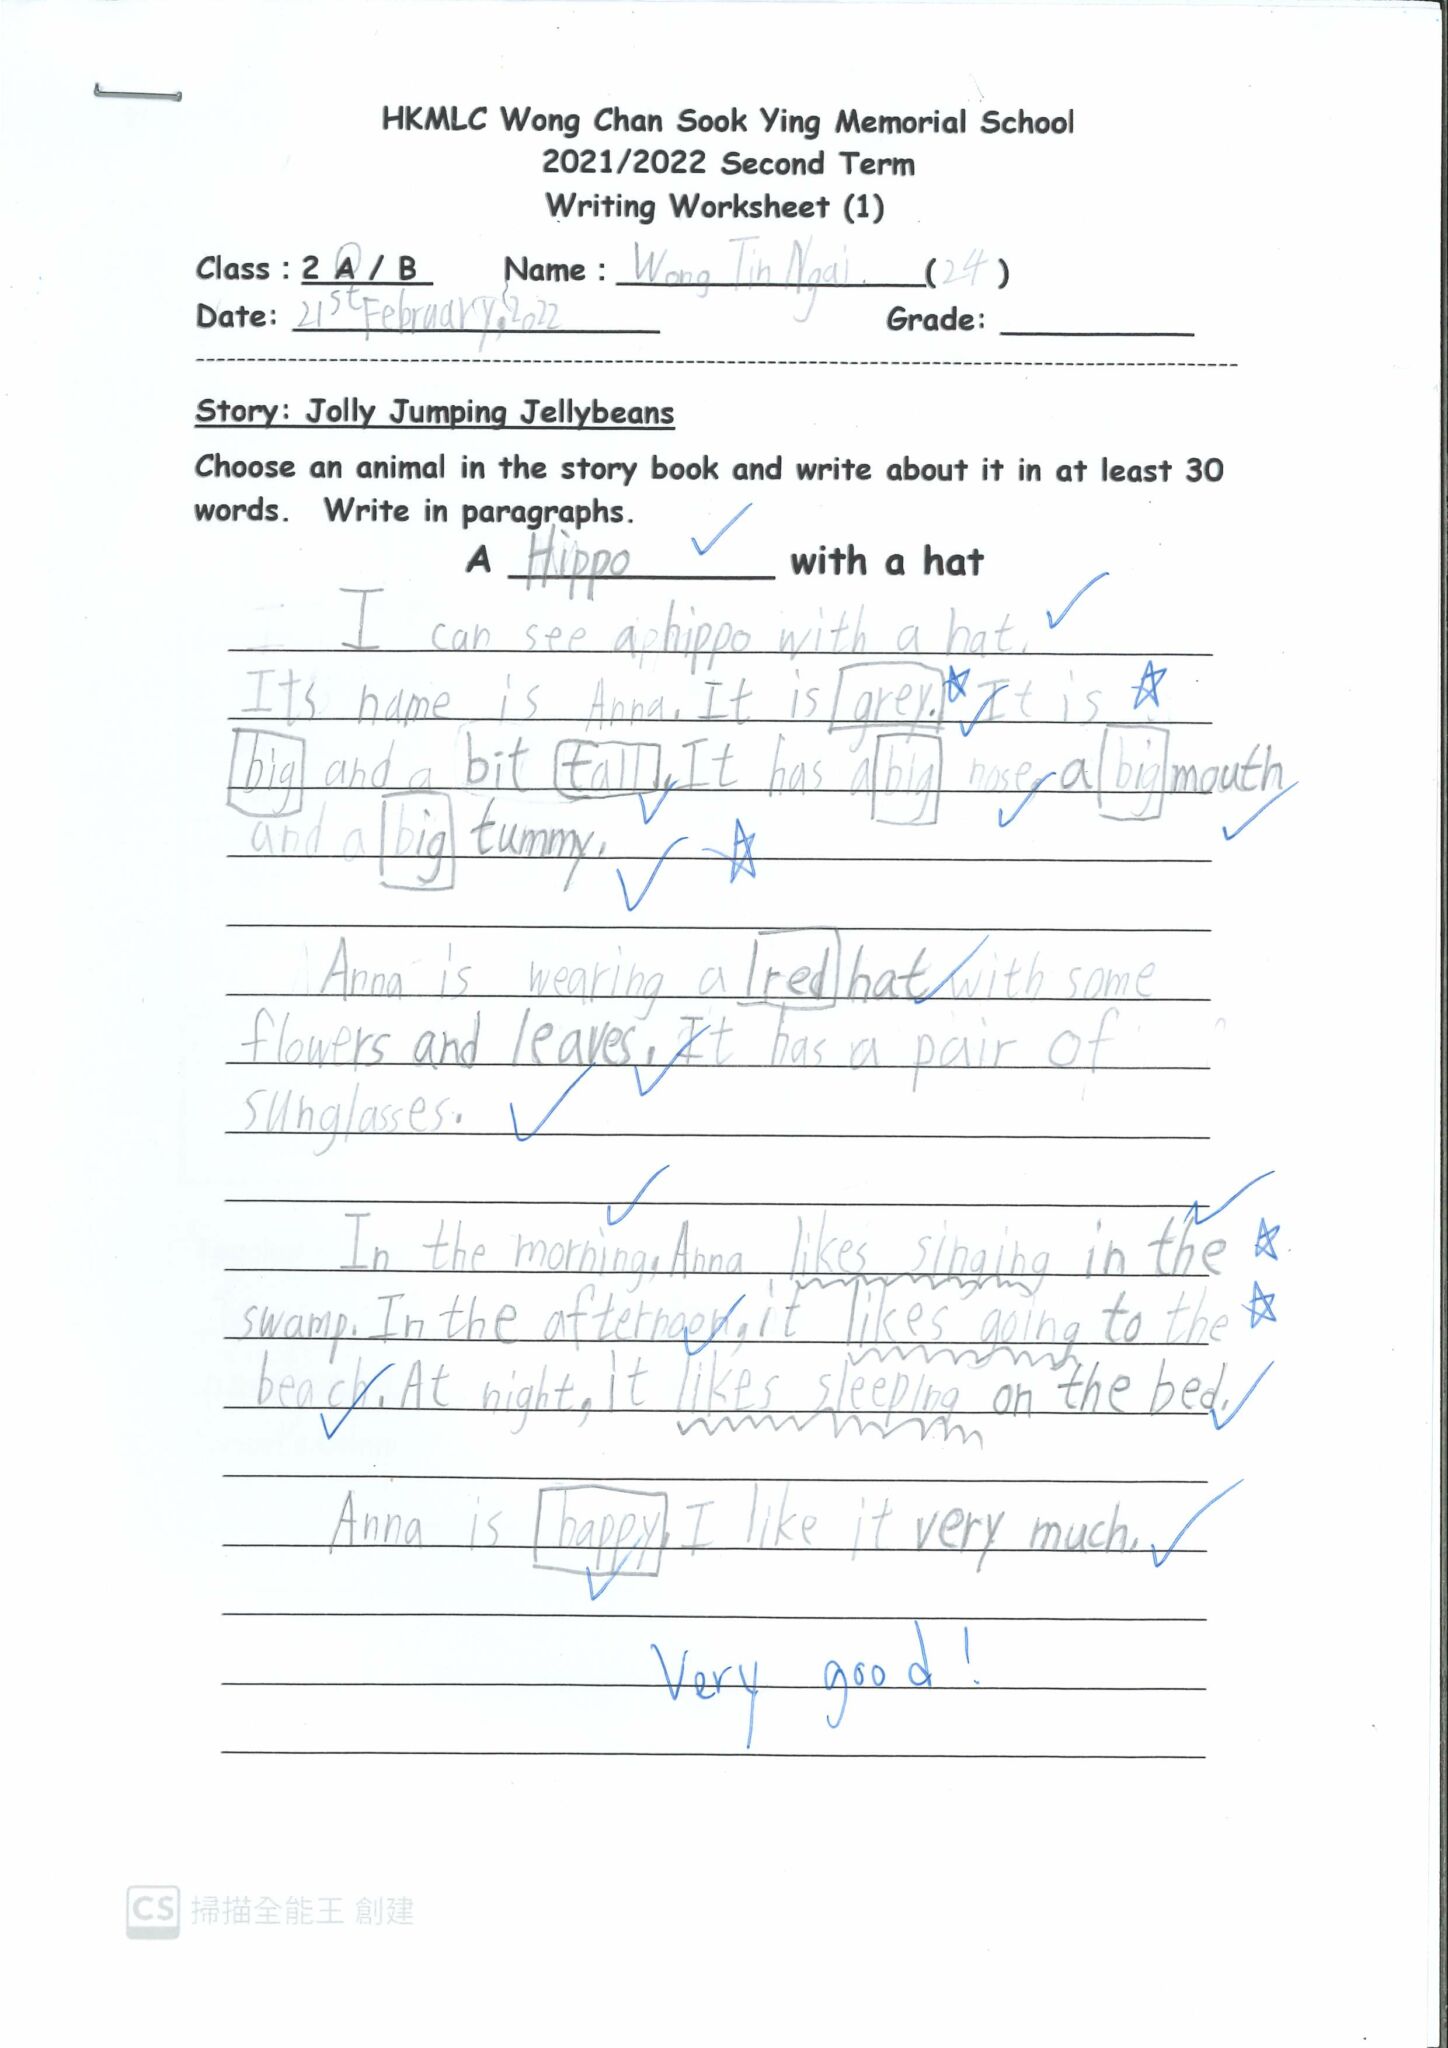 HKMLC Wong Chan Sook Ying Memorial School
2021/2022 Second Term
Writing Worksheet (1)
Class : 2 A / B Name : Wong Tin Ngai (24)
Date: 21st February, 2022 Grade:
Story: Jolly Jumping Jellybeans
Choose an animal in the story book and write about it in at least 30
words. Write in paragraphs.
A Hippo with a hat
I can see a hippo with a hat.
Its name is Anna. It is grey. It is
big and a bit tall. It has a big nose, a big mouth
and a big tummy.
Anna is wearing a red hat with some
flowers and leaves. It has a pair of
sunglasses.
In the morning, Anna likes singing in the
swamp. In the afternoon, it likes going to the
beach. At night, it likes sleeping on the bed.
Anna is happy. I like it very much.
Very good!
CS 掃描全能王 創建